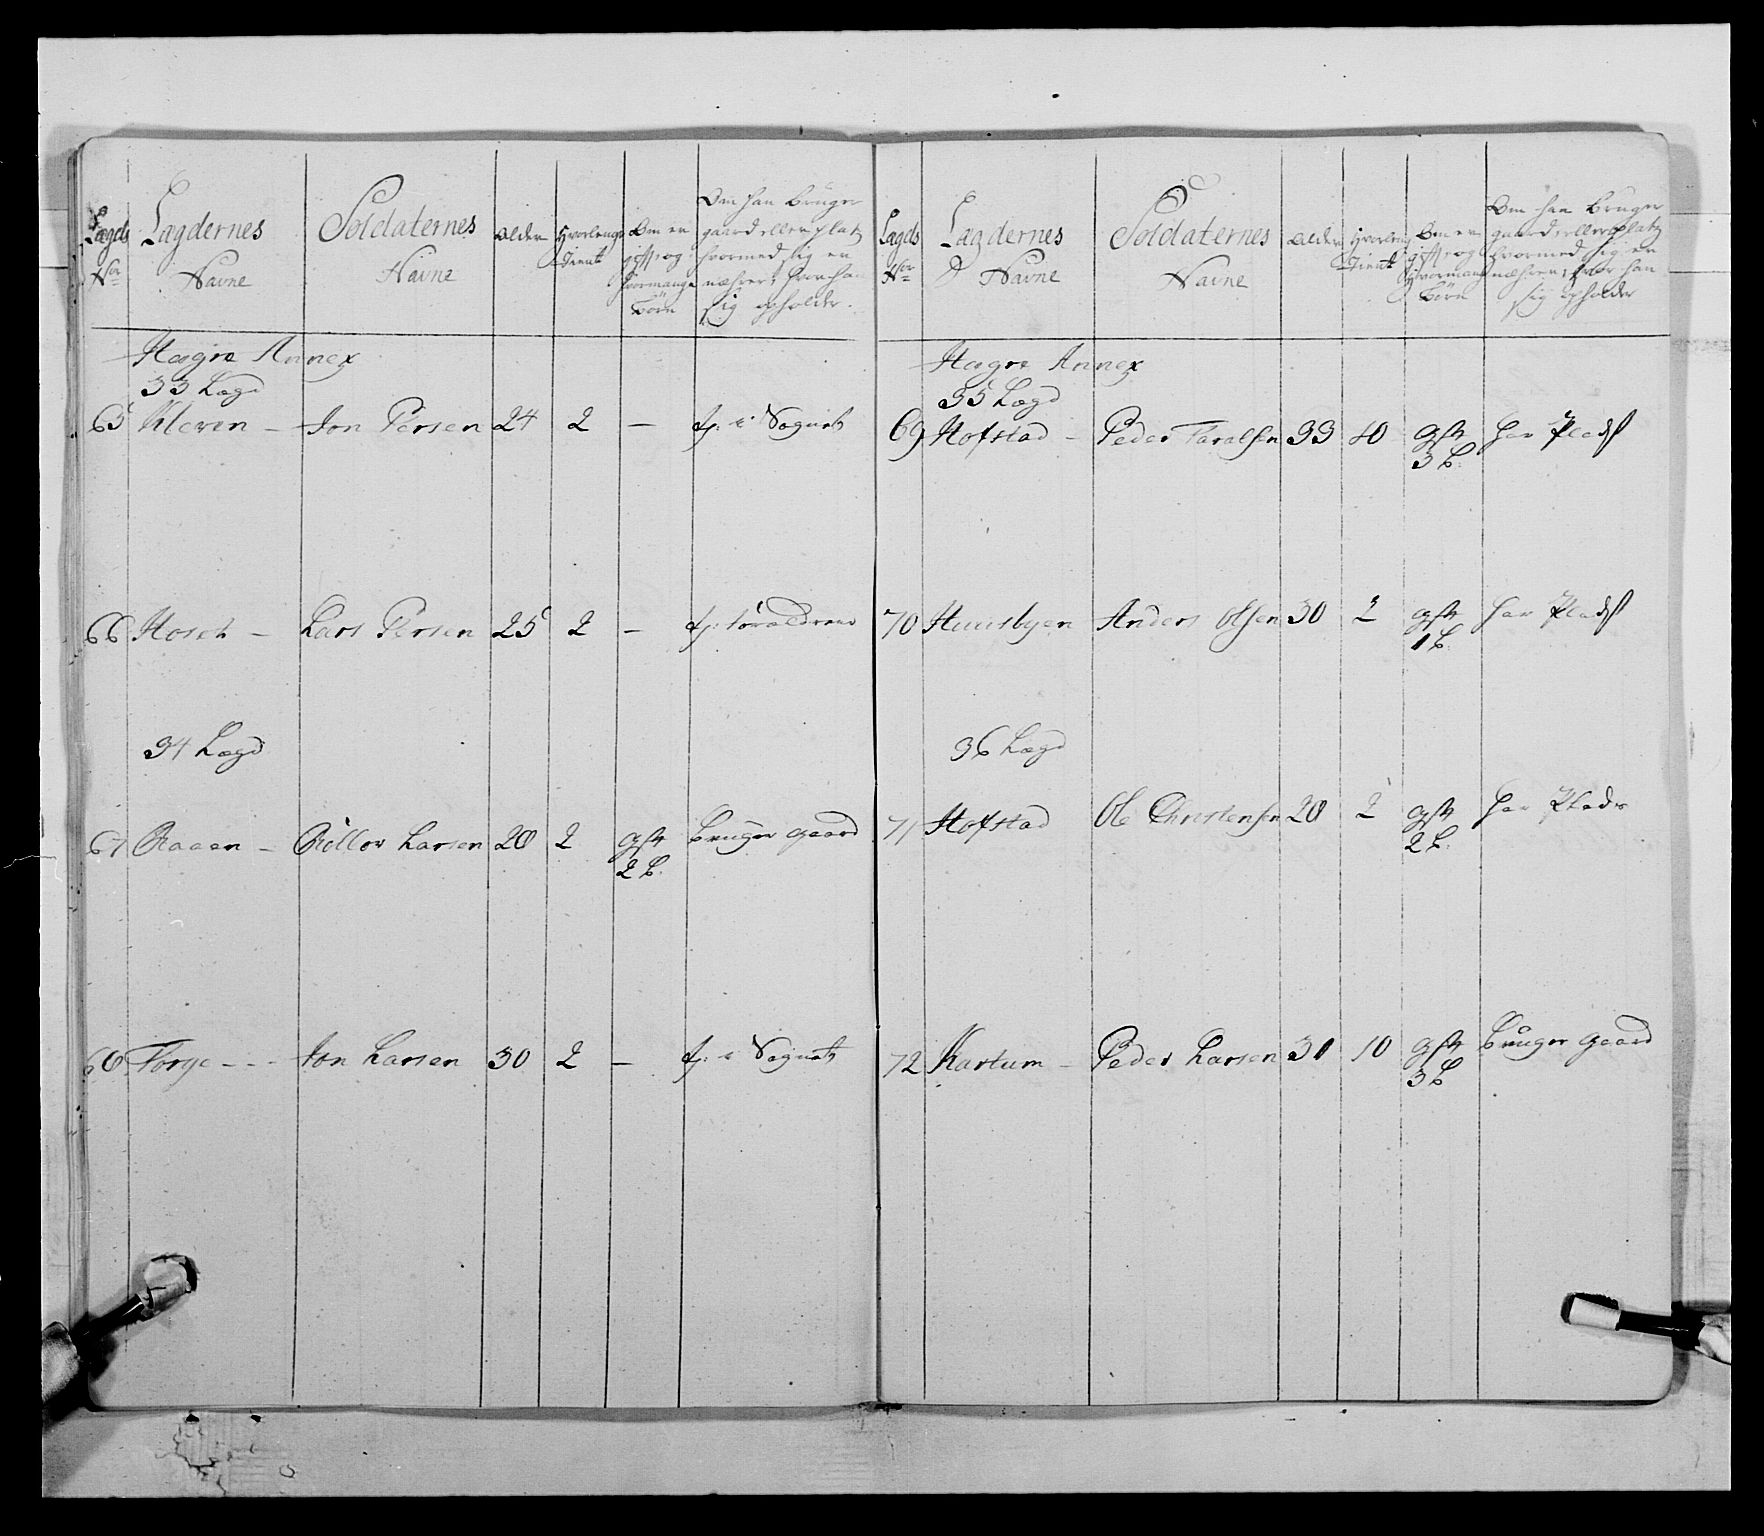 Lægds
Nor
Lægdernes
Navne
Soldaternes
Navne
Alder
Hvorlenge
Tient
Om en
gift og
hvormange
Børn
Om han bruger
gaard eller platz
hvormed sig er
nährer, hvor han
sig opholder.
Hegre Annex
33 Lægd
65 Kleven - Jon Persen 24 2 - op: i Sognet
66 Hosch - Lars Persen 25 2 - op: forældrene
34 Lægd
67 Raaen - Rollov Larsen 28 2 gift bruger gaard
2 B.
68 Forge - - Jon Larsen 30 2 - op: i Sognet
Lægds
Nor
Lægdernes
Navne
Soldaternes
Navne
Alder
Hvorleng
Tient
Om en
gift og
hvormang
Børn
Om han bruger
gaard eller platz
hvormed sig er
næhrer, hvor han
sig opholder
Hegre Annex
35 Lægd
69 Hofstad - Peder Taralsen 33 10 gift har Plads
3 B:
70 Huusbyen Anders Olsen 30 2 gift har Plads
1 B.
36 Lægd
71 Hofstad Ole Christensen 28 2 gift har Plads
2 B.
72 Kartum - Peder Larsen 31 10 gift bruger gaard
3 B